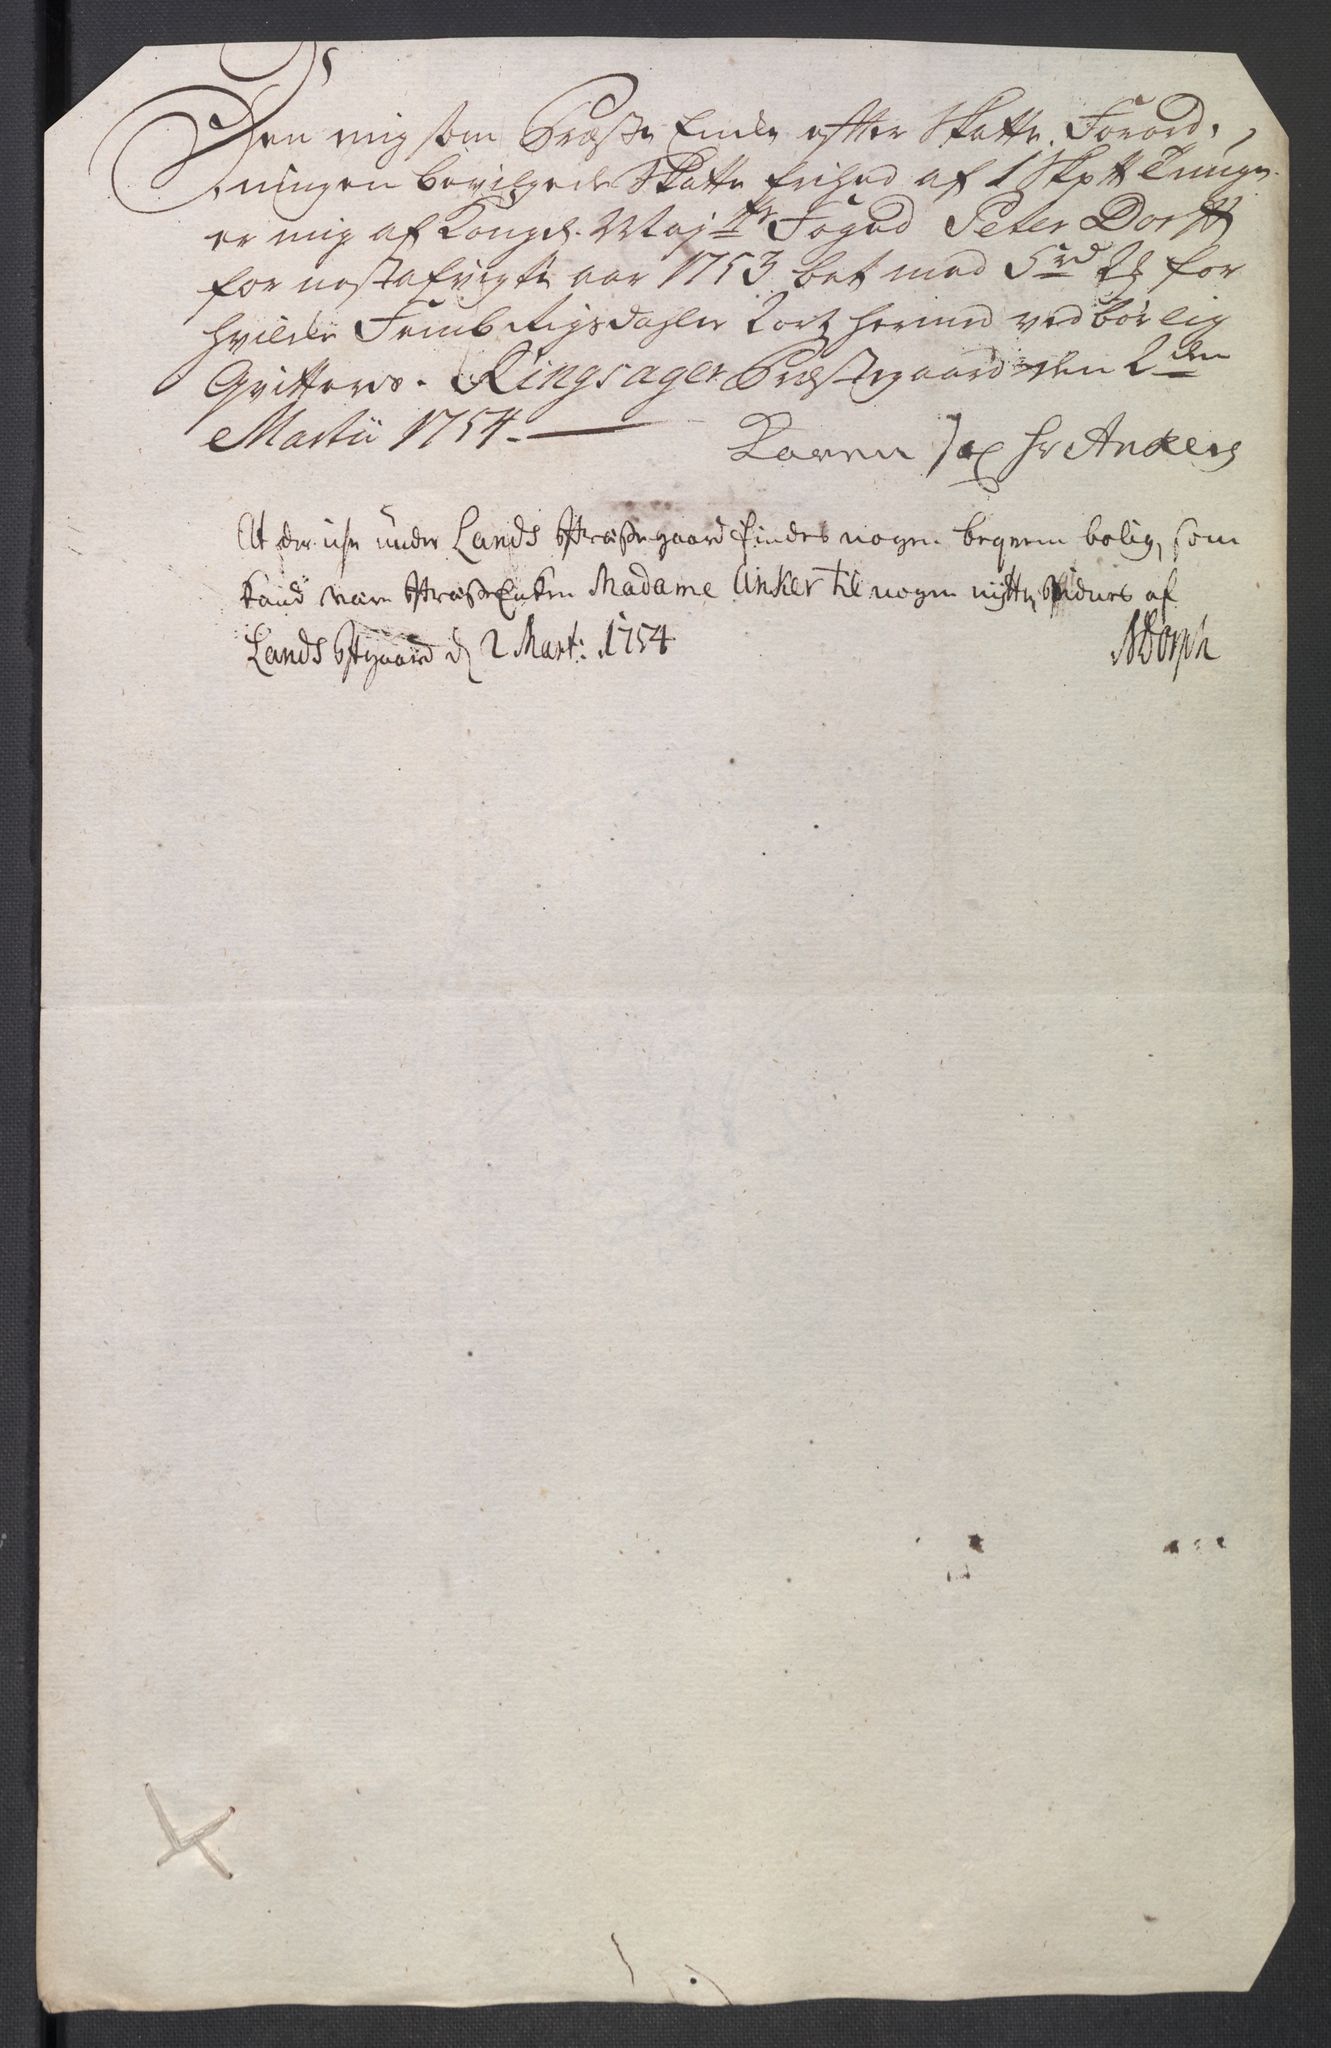 Den mig som Præste Encke effter Skatte. Forord¬
ningen bevilgede Skatte frihed af 1 Skptt Tunge
er mig af Kongel. Maj:ts Foged Peter Dorff
for nestafvigte aar 1753 bet med 5 rd for
hvilcke Femb Rigsdahler Kort hermed vedbørlig
Qvitteres. Ringsager Præstegaard den 2den
Martii 1754.
Karen Sal Hr Ankers
At der icke under Lands Præstegaard findes nogen beqvem bolig, som
kand være Præste Enken Madame Anker til nogen nytte, vidnes af
Lands Pgaard d 2 Mart: 1754
NDorph